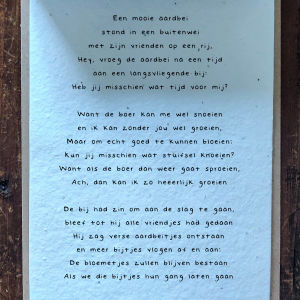 Een mooie aardbei
stond in een buitenwei
met zijn vrienden op een rij,
Hey, vroeg de aardbei na een tijd
aan een langsvliegende bij:
Heb jij misschien wat tijd voor mij?
Want de boer kan me wel snoeien
en ik kan zonder jou wel groeien,
Maar om echt goed te kunnen bloeien:
Kun jij misschien wat stuifsel knoeien?
Want als de boer dan weer gaat sproeien,
Ach, dan kan ik zo heeerlijk groeien
De bij had zin om aan de slag te gaan,
bleef tot hij alle vriendjes had gedaan
Hij zag verse aardbeitjes ontstaan
en meer bijtjes vlogen af en aan:
De bloemetjes zullen blijven bestaan
Als we die bijtjes hun gang laten gaan